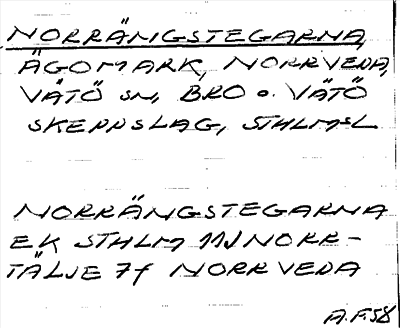 NORRÄNGSTEGARNA,
ÄGOMARK, NORRVEDA,
VÄTÖ SN, BRO o. VÄTÖ
SKEPPSLAG, STHLMSL
NORRÄNGSTEGARNA
EK STHLM 11J NORR-
TÄLJE 7f NORRVEDA
A.F.58